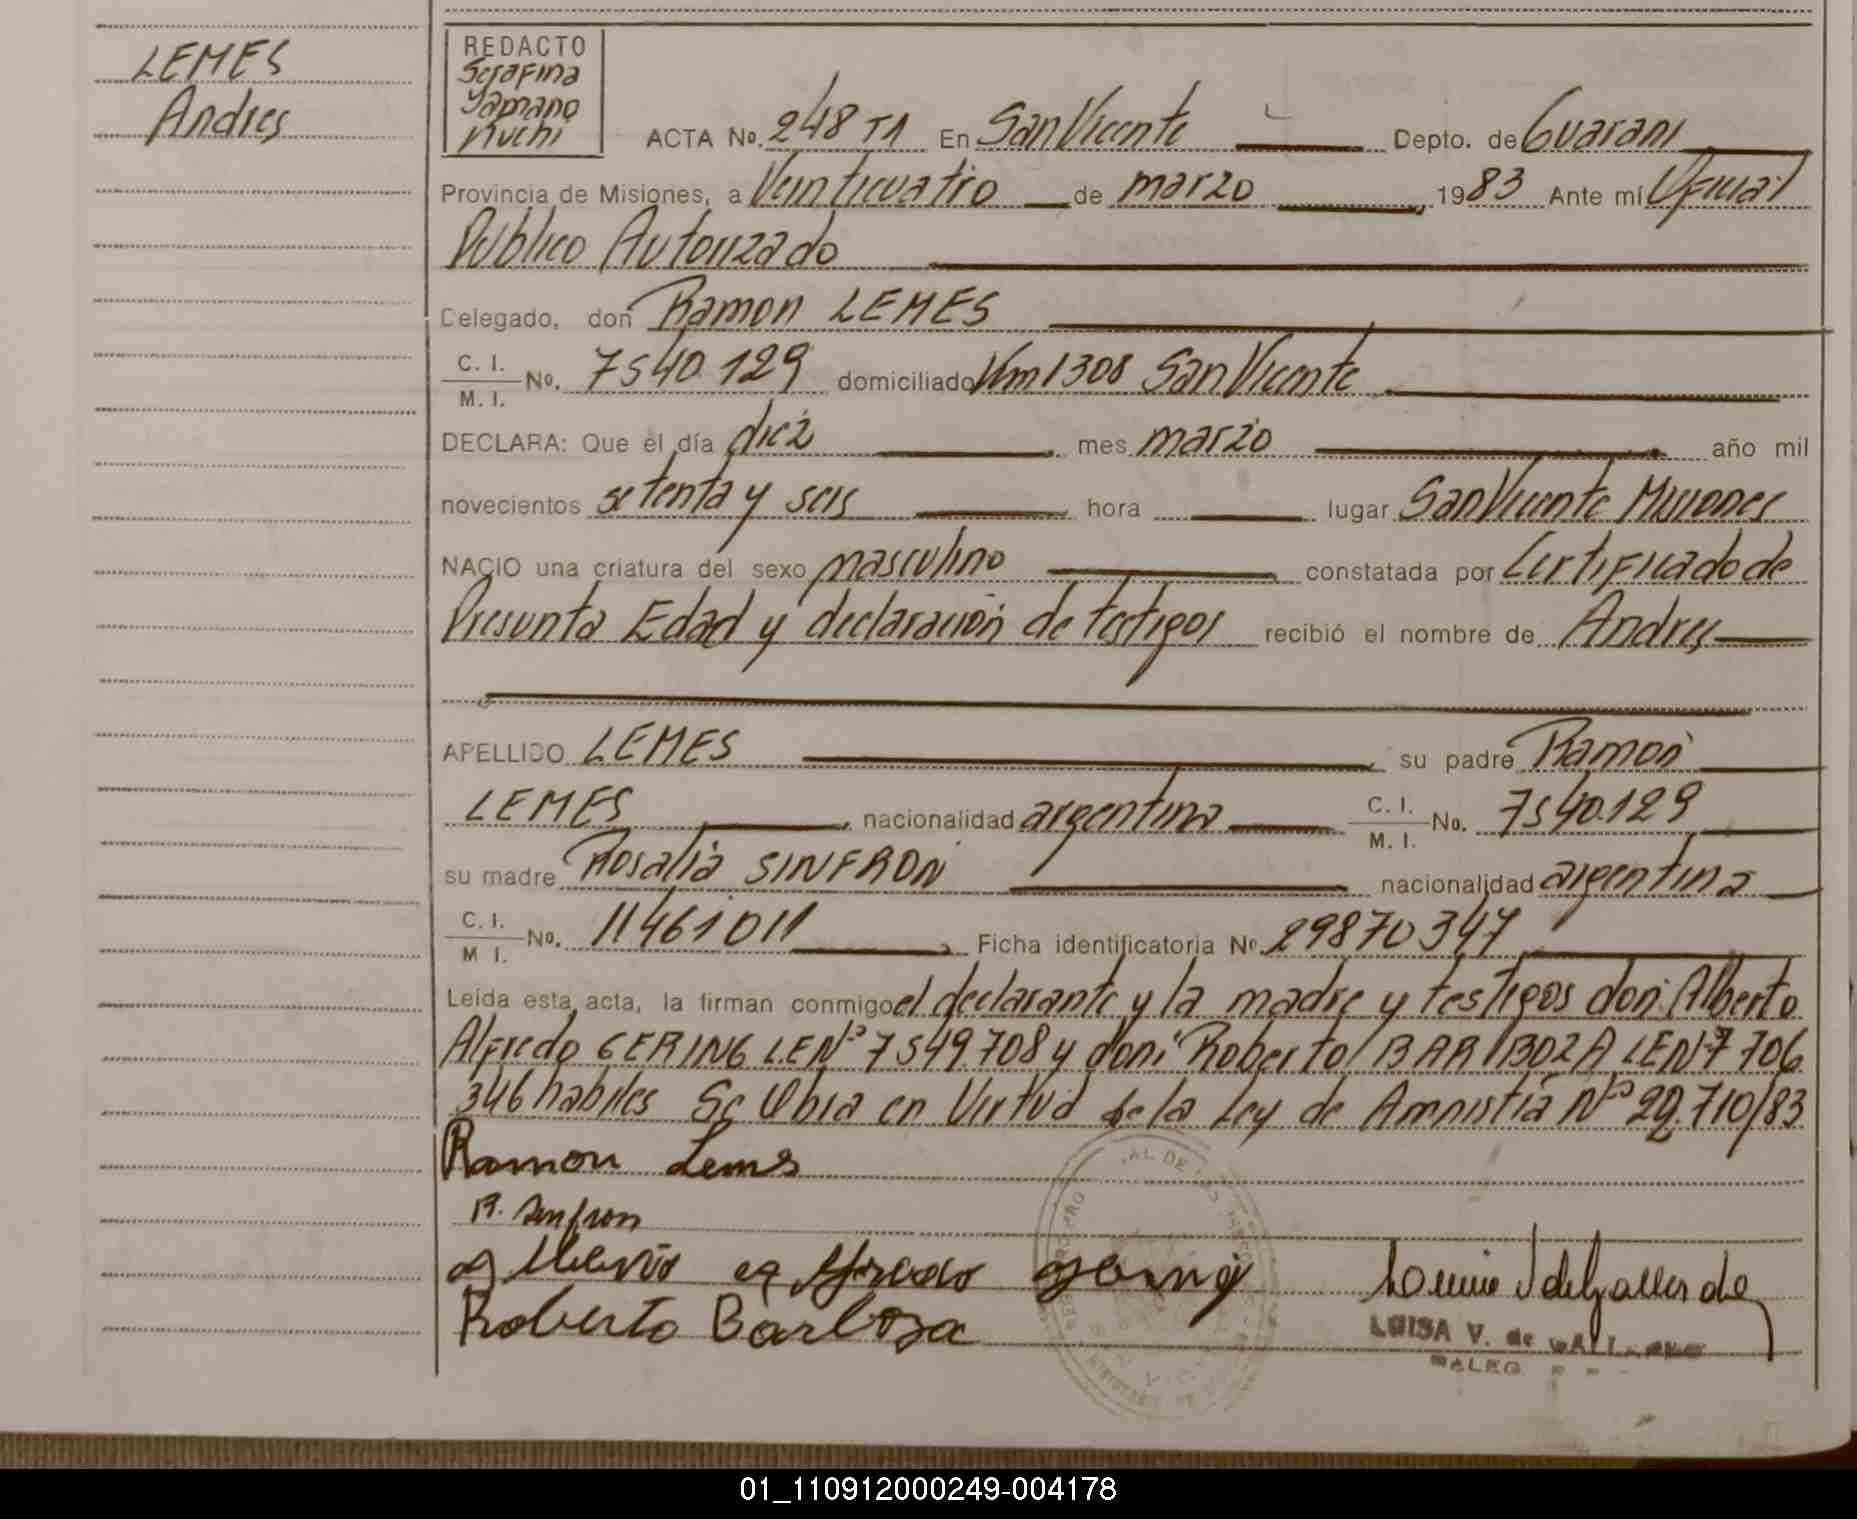 LEMES
Andres
REDACTO
Serafina
Yamano
Kuchi
ACTA No. 248 T1 En San Vicente Depto. de Guarani
Provincia de Misiones, a Veinticuatro de marzo 1983 Ante mí Oficial
Publico Autorizado
Delegado, don Ramon LEMES
C. I.
M. I. No. 7540.129 domiciliado Km 1308 San Vicente
DECLARA: Que el día diez mes marzo año mil
novecientos setenta y seis hora lugar San Vicente Misiones
NACIO una criatura del sexo masculino constatada por Certificado de
Presunta Edad y declaración de testigos recibió el nombre de Andres
APELLIDO LEMES su padre Ramon
LEMES nacionalidad argentina C. I.
M. I. No. 7540.129
su madre Rosalia SINFRON nacionalidad argentina
C. I.
M I. No. 11461011 Ficha identificatoria No 29870347
Leída esta acta, la firman conmigo el declarante y la madre y testigos don: Alberto
Alfredo GERING L.E Nº 7549.708 y don: Roberto BARBOZA LE Nº 7 706
346 habiles Se labra en Virtud de la Ley de Amnistía Nº 22.710/83
Ramon Lemes
R. Sinfron
Roberto Barboza
LUISA V. de GALLARDO